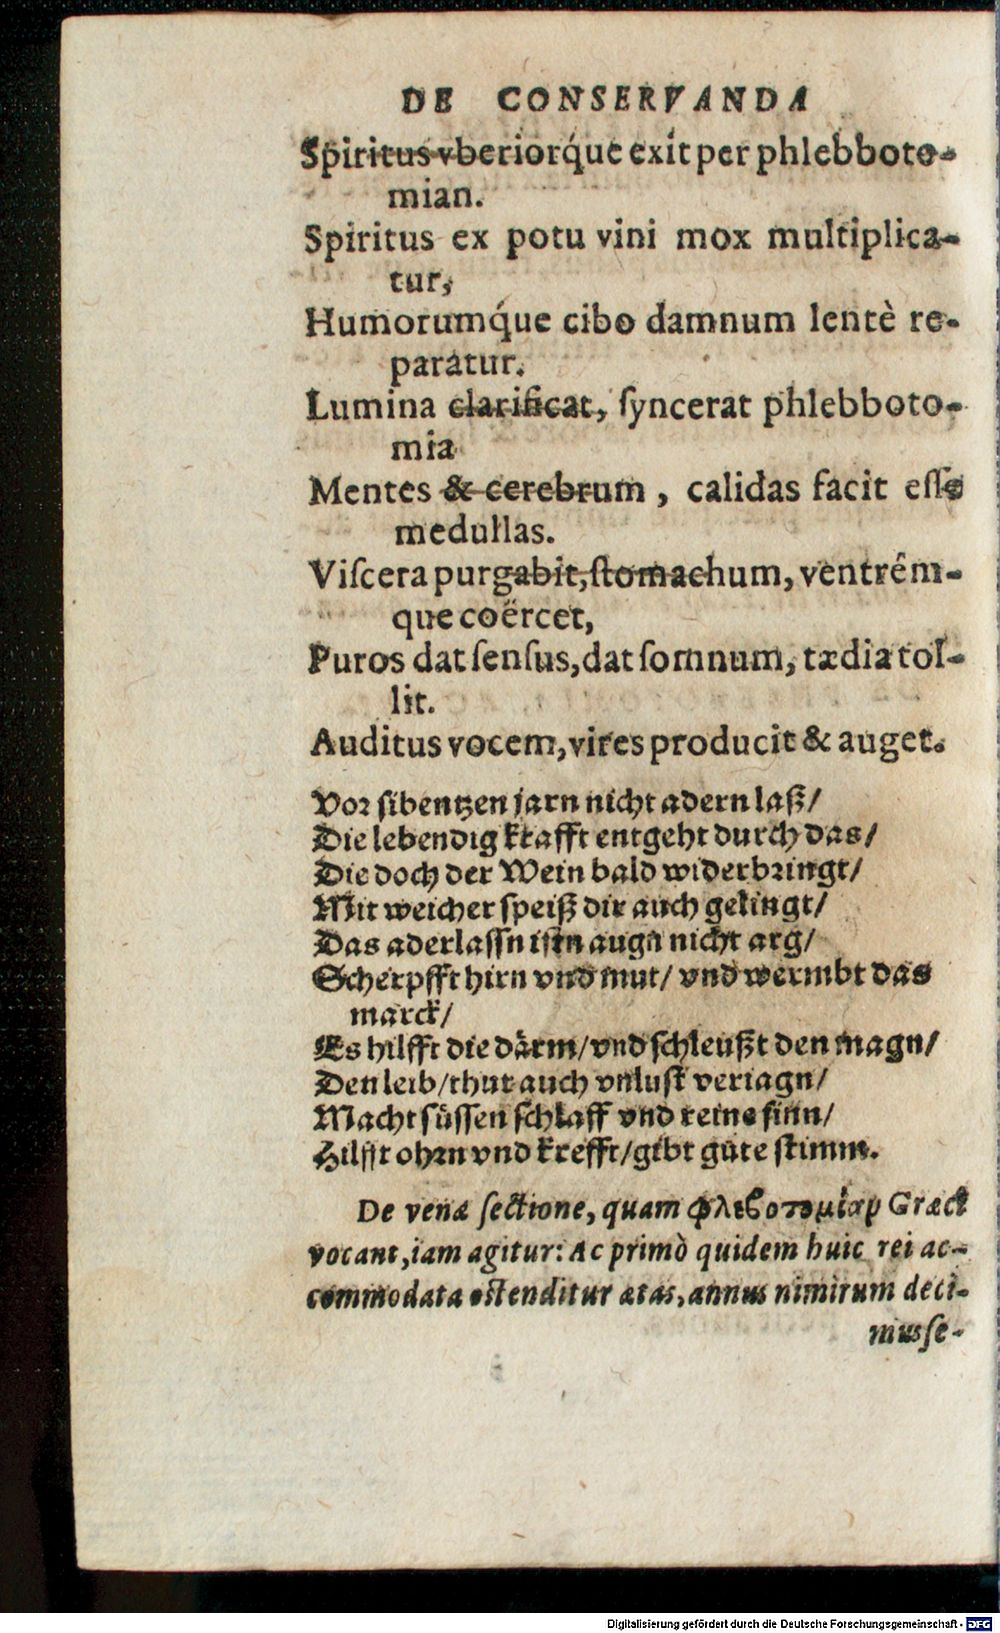 DE CONSERVANDA
Spiritus vberiorq́ue exit per phlebboto-
mian.
Spiritus ex potu vini mox multiplica-
tur,
Humorumq́ue cibo damnum lentè re-
paratur.
Lumina clarificat, ſyncerat phlebboto-
mia
Mentes & cerebrum, calidas facit eſſe
medullas.
Viſcera purgabit, ſtomachum, ventrém-
que coërcet,
Puros dat ſenſus, dat ſomnum, tædia tol-
lit.
Auditus vocem, vires producit & auget.
Vor ſibentzen jarn nicht adern laß/
Die lebendig krafft entgeht durch das/
Die doch der Wein bald widerbringt/
Mit weicher ſpeiß dir auch gelingt/
Das aderlaſſn iſtn augn nicht arg/
Scherpfft hirn vnd mut/ vnd wermbt das
marck/
Es hilfft die därm/ vnd ſchleußt den magn/
Den leib/ thut auch vnluſt veriagn/
Macht ſüſſen ſchlaff vnd reine ſinn/
Hilfft ohrn vnd krefft/ gibt gute ſtimm.
De venæ ſectione, quam φλεβοτομίαν Græci
vocant, iam agitur: Ac primò quidem huic rei ac-
commodata oſtenditur ætas, annus nimirum deci-
mus ſe-
Digitalisierung gefördert durch die Deutsche Forschungsgemeinschaft - DFG